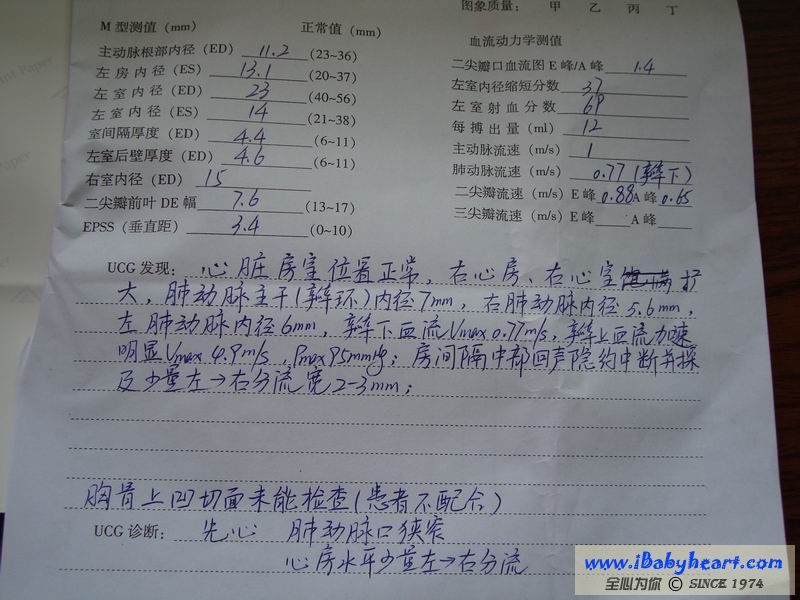 图象质量： 甲 乙 丙 丁
M 型测值（mm） 正常值（mm）
主动脉根部内径（ED） 11.2 (23~36)
左 房 内 径（ES） 13.1 (20~37)
左 室 内 径（ED） 23 (40~56)
左 室 内 径（ES） 14 (21~38)
室间隔厚度（ED） 4.4 (6~11)
左室后壁厚度（ED） 4.6 (6~11)
右室内径（ED） 15
二尖瓣前叶 DE 幅 7.6 (13~17)
EPSS（垂直距） 3.4 (0~10)
血流动力学测值
二尖瓣口血流图 E 峰/A 峰 1.4
左室内径缩短分数 37
左 室 射 血 分 数 69
每 搏 出 量（ml） 12
主动脉流速（m/s） 1
肺动脉流速（m/s） 0.77（瓣下）
二尖瓣流速（m/s）E 峰 0.88 A 峰 0.65
三尖瓣流速（m/s）E 峰 A 峰
UCG 发现： 心脏房室位置正常，右心房、右心室扩
大，肺动脉主干（瓣环）内径7mm，右肺动脉内径5.6mm，
左肺动脉内径6mm，瓣下血流Vmax 0.77m/s，瓣上血流加速
明显Vmax 4.9m/s，Pmax 95mmHg；房间隔中部回声隐约中断并探
及少量左→右分流宽2-3mm；
胸骨上凹切面未能检查（患者不配合）
UCG 诊断： 先心 肺动脉口狭窄
心房水平少量左→右分流
www.iBabyheart.com
全心为你 © SINCE 1974